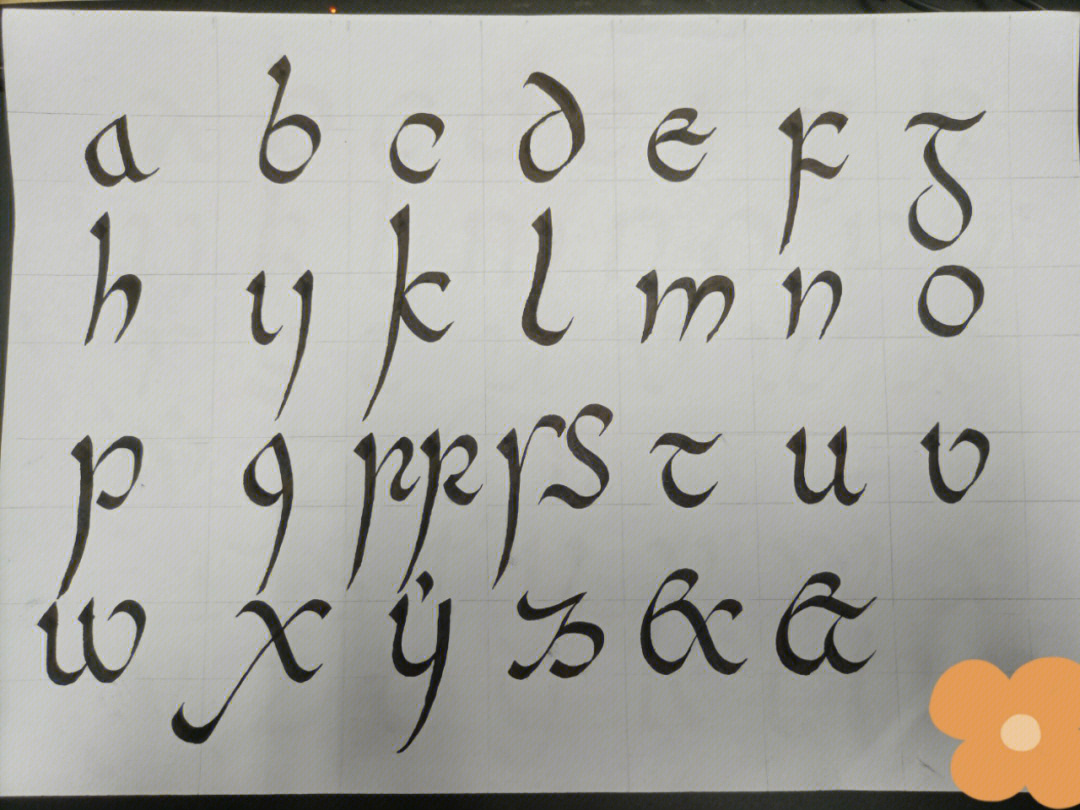 a b c d e f g
h ij k l m n o
p q r r ſ s t u v
w x ẏ z & &